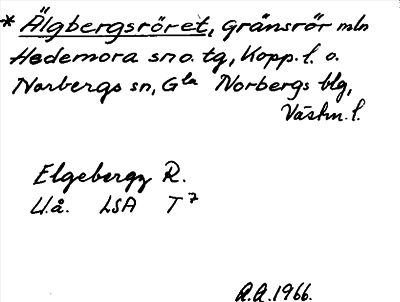 * Älgbergsröret, Gränsrör mln
Hedemora sn o. tg, Kopp. l. o.
Norbergs sn, Gla Norbergs blg,
Västm. l.
Elgebergz R.
U.å. LSA T 7
A.A. 1966.